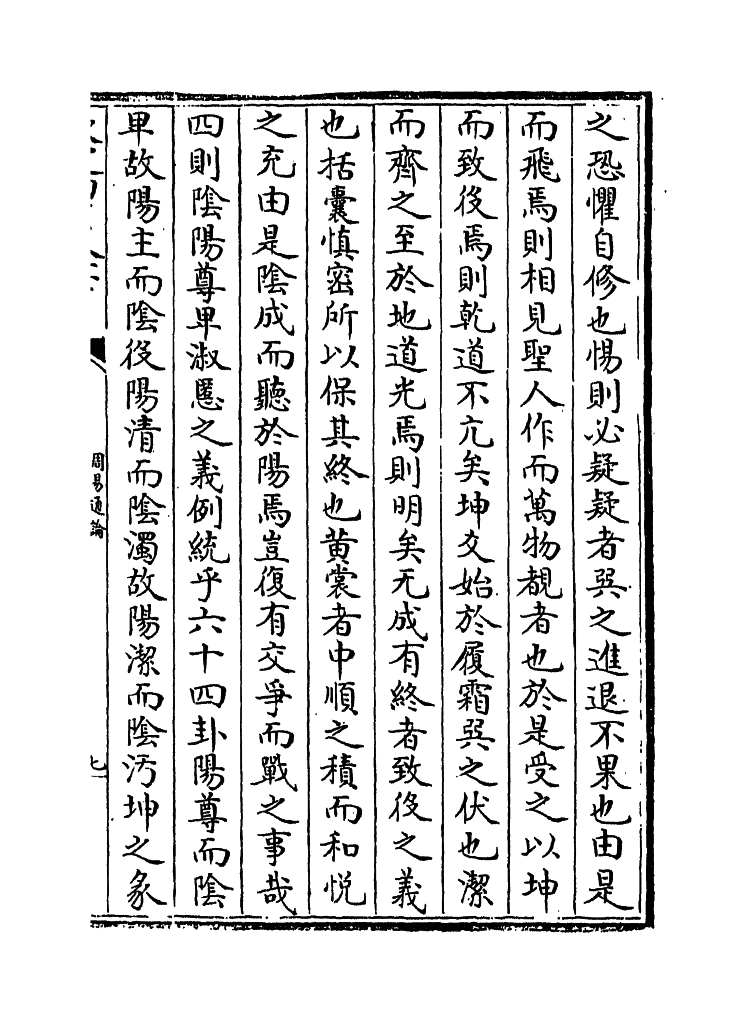 之恐懼自修也惕則必疑疑者巽之進退不果也由是
而飛焉則相見聖人作而萬物覩者也於是受之以坤
而致役焉則乾道不亢矣坤爻始於履霜巽之伏也潔
而齊之至於地道光焉則明矣无成有終者致役之義
也括囊慎密所以保其終也黄裳者中順之積而和悅
之充由是陰成而聽於陽焉豈復有交爭而戰之事哉
四則陰陽尊卑淑慝之義例統乎六十四卦陽尊而陰
卑故陽主而陰役陽清而陰濁故陽潔而陰汚坤之彖
周易通論
七